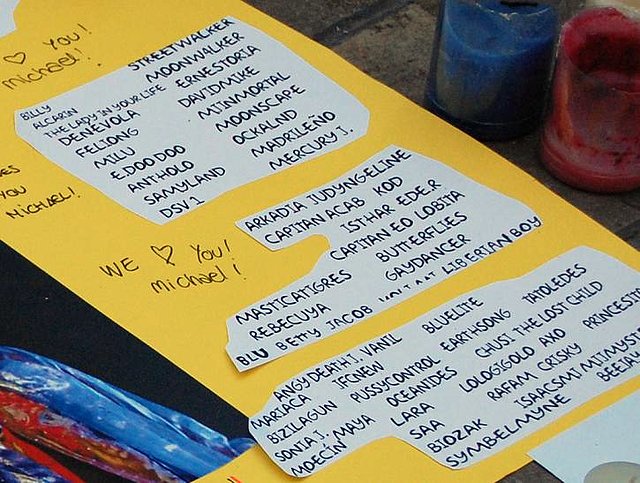 YOU!
michael!
ES
YOU
MICHAEL!
WE YOU!
michael!
STREETWALKER
BILLY MOONWALKER
ALCARIN ERNESTORIA
THE LADY IN YOUR LIFE DAVIDMIKE
DENEVOLA MIINMORTAL
FELIONG MOONSCAPE
MILU OCKALND
E.DOO DOO MADRILEÑO
ANTHOLO MERCURY J.
SAMYLAND
DSV1
ARKADIA JUDYNGELINE
CAPITAN ACAB KOD
ISTHAR EDE.R
CAPITAN EO LOBITA
MASTICATIGRES BUTTERFLIES
REBECUYA GAYDANCER
BLU BETTY JACOB LIBERIAN BOY
ANGYDEATH J. VANIL BLUELITE
MARIACA IFCNEW EARTHSONG TATOLEDES
BIZILAGUN PUSSYCONTROL CHUSI THE LOST CHILD
SONIA J. MAYA OCEANIDES LOLOGIGOLO AXO PRINCEST
MOECIN LARA RAFAM CRISKY
SAA ISAACSMI MIMYST
BIOZAK BEEJA
SYMBELMYNE